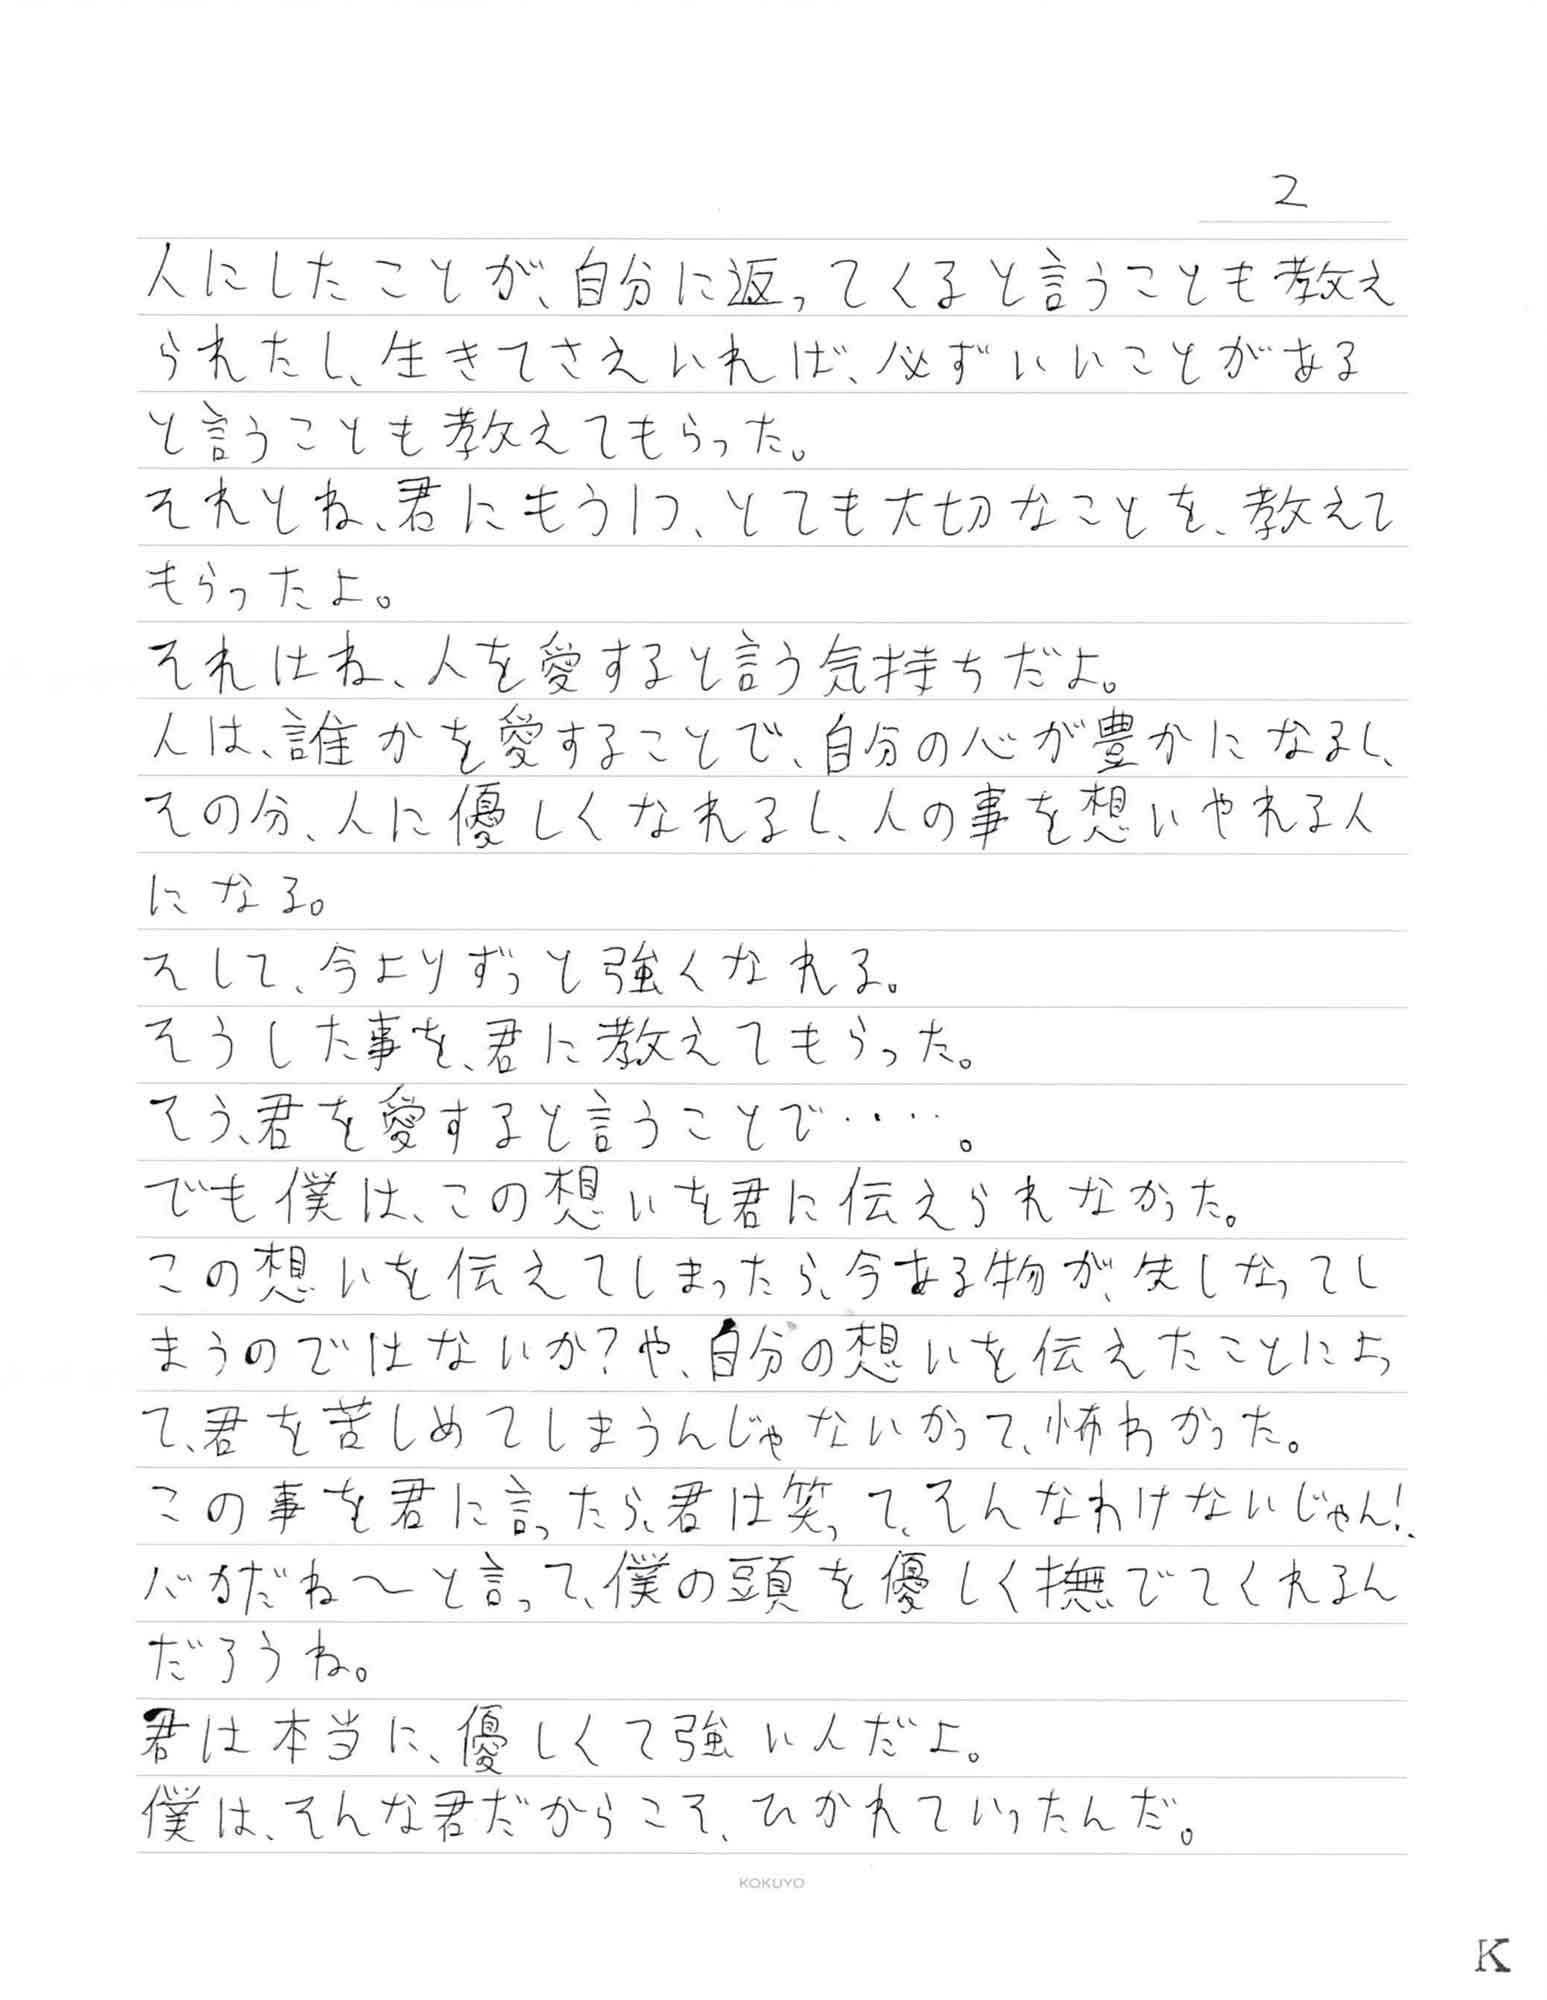 2
人にしたことが、自分に返ってくると言うことも教え
られたし、生きてさえいれば、必ずいいことがある
と言うことも教えてもらった。
それとね、君にもう1つ、とても大切なことを、教えて
もらったよ。
それはね、人を愛すると言う気持ちだよ。
人は、誰かを愛することで、自分の心が豊かになるし、
その分、人に優しくなれるし、人の事を想いやれる人
になる。
そして、今よりずっと強くなれる。
そうした事を、君に教えてもらった。
そう、君を愛すると言うことで・・・・・。
でも僕は、この想いを君に伝えられなかった。
この想いを伝えてしまったら、今ある物が、失しなってし
まうのではないか?や、自分の想いを伝えたことによっ
て、君を苦しめてしまうんじゃないかって、怖わかった。
この事を君に言ったら、君は笑って、そんなわけないじゃん!、
バカだね〜と言って、僕の頭を優しく撫でてくれるん
だろうね。
君は本当に、優しくて強い人だよ。
僕は、そんな君だからこそ、ひかれていったんだ。
KOKUYO
K